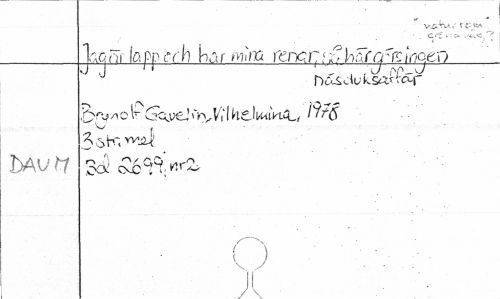 "naturram"
gåna mig?
Jag är lapp och har mina renar, så här gårs ingen
näsduksaffär
Brynolf Gavelin, Vilhelmina, 1978
3 str. mel.
DAUM Bd 2699, nr 2